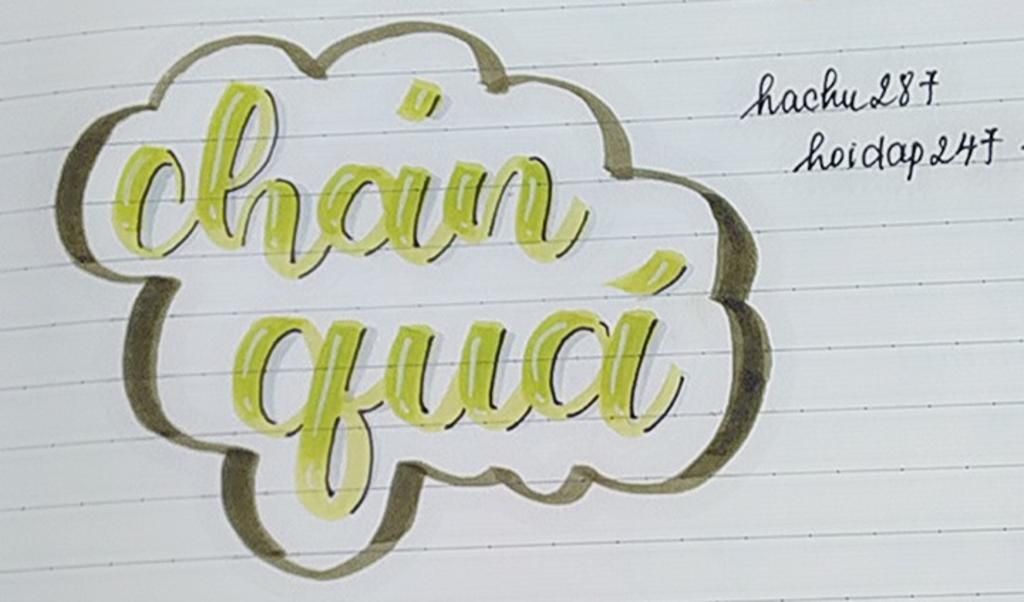 chán
quá
hachu287
hoidap247